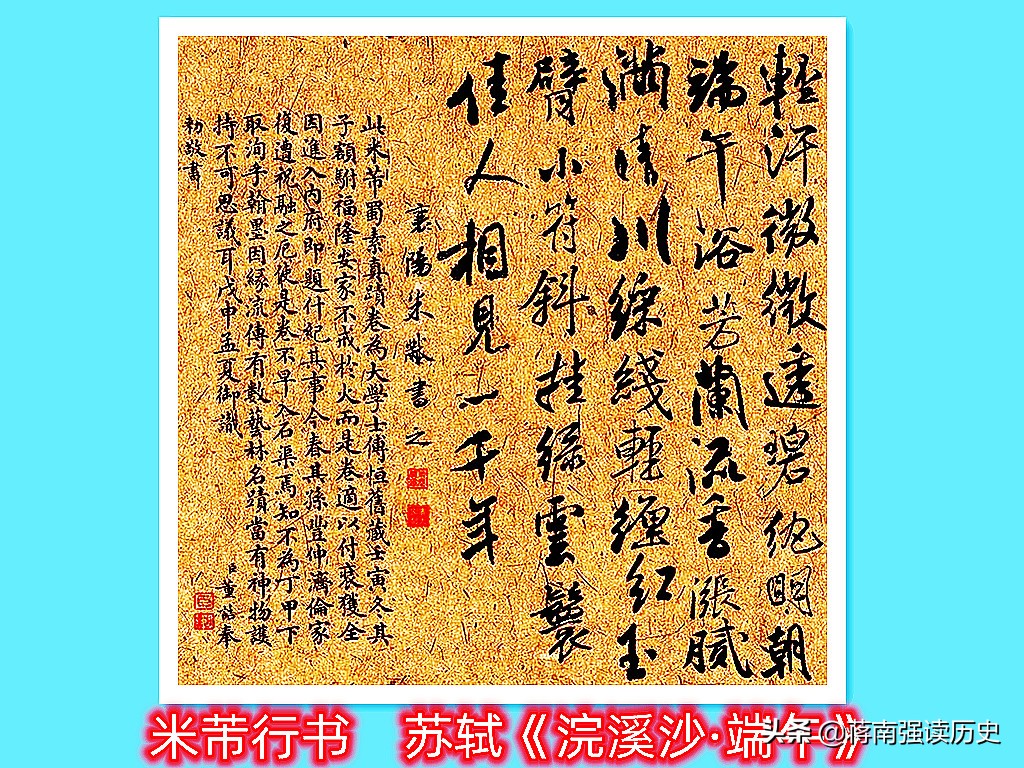 輕汗微微透碧紈明朝
端午浴芳蘭流香漲膩
滿晴川綵綫輕纏紅玉
臂小符斜挂綠雲鬟
佳人相見一千年
襄陽米黻書之
此米芾蜀素真蹟卷為大學士傅恒舊藏壬寅冬其
子額駙福隆安家不戒於火而是卷適以付裝獲全
因進入內府即題什紀其事今春其孫豐伸濟倫家
復遭祝融之厄使是卷不早入石渠焉知不為丁甲下
取洵乎翰墨因緣流傳有數藝林名蹟當有神物護
持不可思議耳戊申孟夏御識
臣董誥奉
勅敬書
米芾行书 苏轼《浣溪沙·端午》
头条 @蒋南强读历史